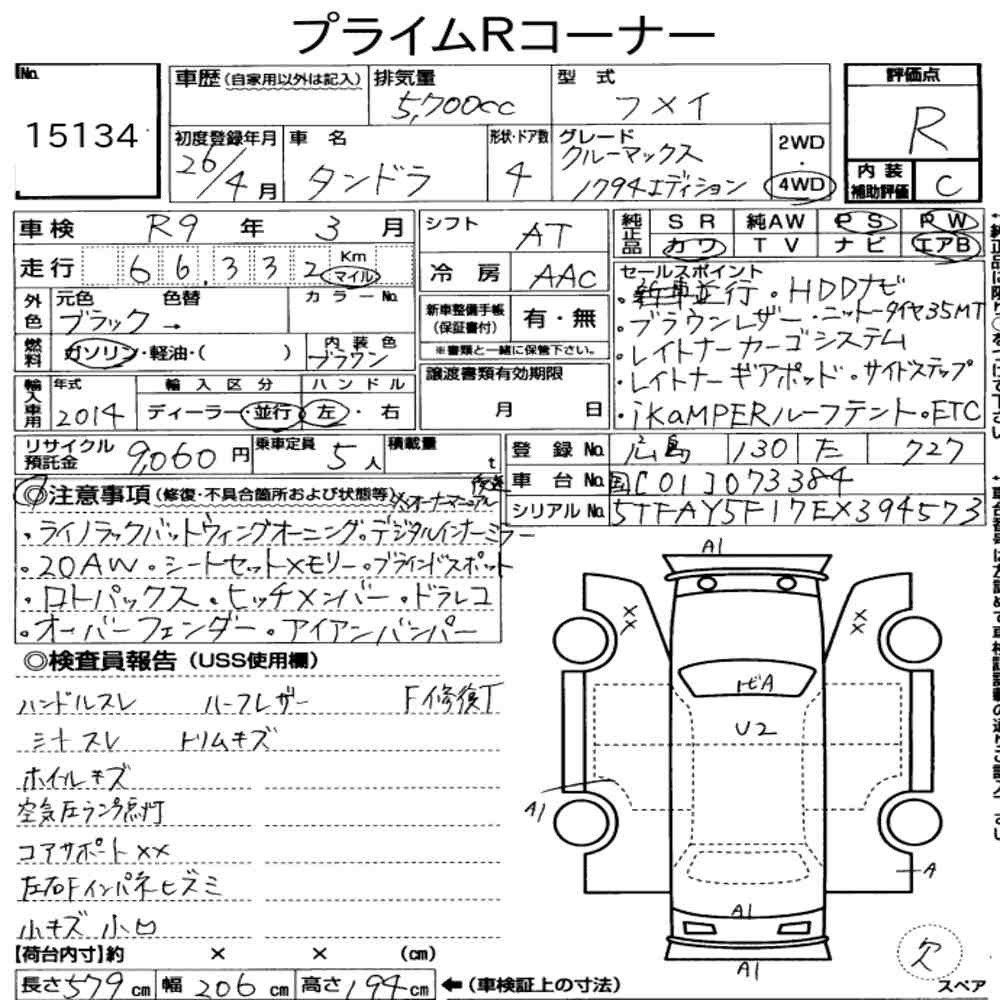 プライムRコーナー
No. 15134
車歴(自家用以外は記入) 排気量 5,700cc 型式 フメイ
評価点 R
初度登録年月 26/4月 車名 タンドラ 形状・ドア数 4 グレード クルーマックス 1794エディション 2WD・4WD
内装補助評価 C
車検 R9年 3月 シフト AT 純正品 SR 純AW PS PW
カワ TV ナビ エアB
走行 66,332 Km マイル 冷房 AAC
セールスポイント
・新車並行 ・HDDナビ
外色 元色 ブラック → 色替 カラーNo. 新車整備手帳(保証書付) 有・無
・ブラウンレザー ・ニットータイヤ35MT
※書類と一緒に保管下さい。
・レイトナーカーゴシステム
燃料 ガソリン・軽油・( ) 内装色 ブラウン
譲渡書類有効期限 月 日
・レイトナーギアポッド ・サイドステップ
輸入車用 年式 2014 輸入区分 ディーラー・並行 ハンドル 左・右
・iKAMPERルーフテント ・ETC
リサイクル預託金 9,060円 乗車定員 5人 積載量 t
登録No. 広島 130 た 727
車台No. 国[01]073384
シリアルNo. 5TFAY5F17EX394573
◎注意事項(修復・不具合箇所および状態等) ×オーナーマニュアル後送
・ライノラックバットウィングオーニング ・デジタルインナーミラー
・20AW ・シートセットメモリー ・ブラインドスポット
・ロトパックス ・ヒッチメンバー ・ドラレコ
・オーバーフェンダー ・アイアンバンパー
◎検査員報告(USS使用欄)
ハンドルスレ ハーフレザー F修復丁
ミナスレ トリムキズ
ホイルキズ
空気圧ランプ点灯
コアサポート××
左右Fインパネヒズミ
小キズ 小凹
【荷台内寸】約 × × (cm)
長さ579cm 幅206cm 高さ194cm ←(車検証上の寸法)
A1
××
××
トビA
U2
A1
A
A1
A1
欠
スペア